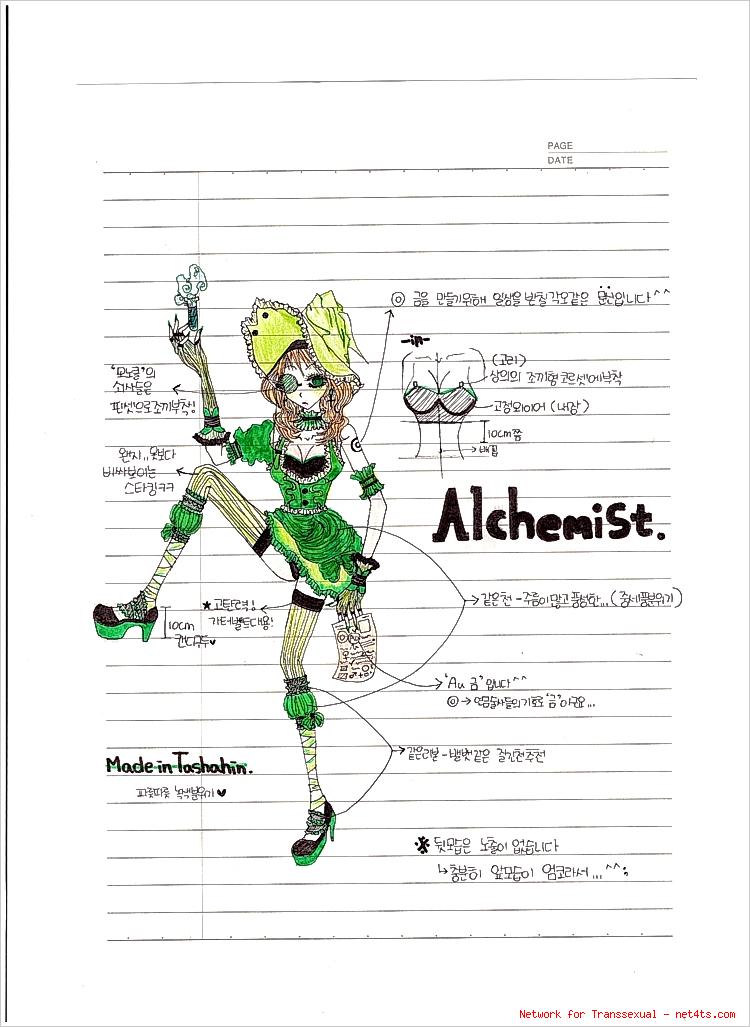 PAGE
DATE
◎ 금을 만들기위해 일생을 받칠 각오같은 문신입니다^^
-in-
(고리)
상의의 조끼형 코르셋에 부착
고정와이어 (내장)
10cm쯤
'모노클'의
쇠사슬은
핀셋으로 조끼부착!
왠지..옷보다
비싸보이는
스타킹ㅋㅋ
Alchemist.
10cm
★고탄력!
가터벨트대용!
같은천 - 주름이많고 풍성한... (중세풍분위기)
'Au 금' 입니다^^
◎→연금술사들의기호로 '금'이구요...
같은리본 -
Made in Tashahin.
※ 뒷모습은 노출이 없습니다
↳충분히 앞모습이 엄코라서...^^;
Network for Transsexual - net4ts.com